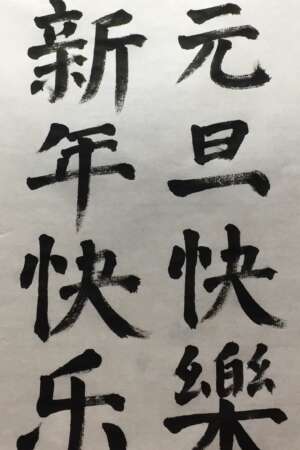 元旦快樂
新年快乐